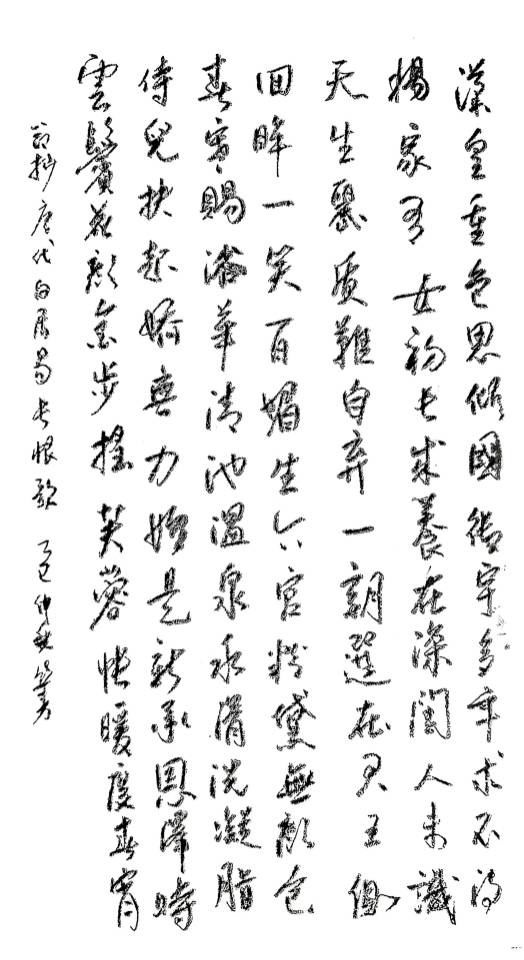 漢皇重色思傾國御宇多年求不得
楊家有女初長成養在深閨人未識
天生麗質難自棄一朝選在君王側
回眸一笑百媚生六宮粉黛無顏色
春寒賜浴華清池溫泉水滑洗凝脂
侍兒扶起嬌無力始是新承恩澤時
雲鬢花顏金步搖芙蓉帳暖度春宵
抄唐代白居易長恨歌 乙巳仲秋